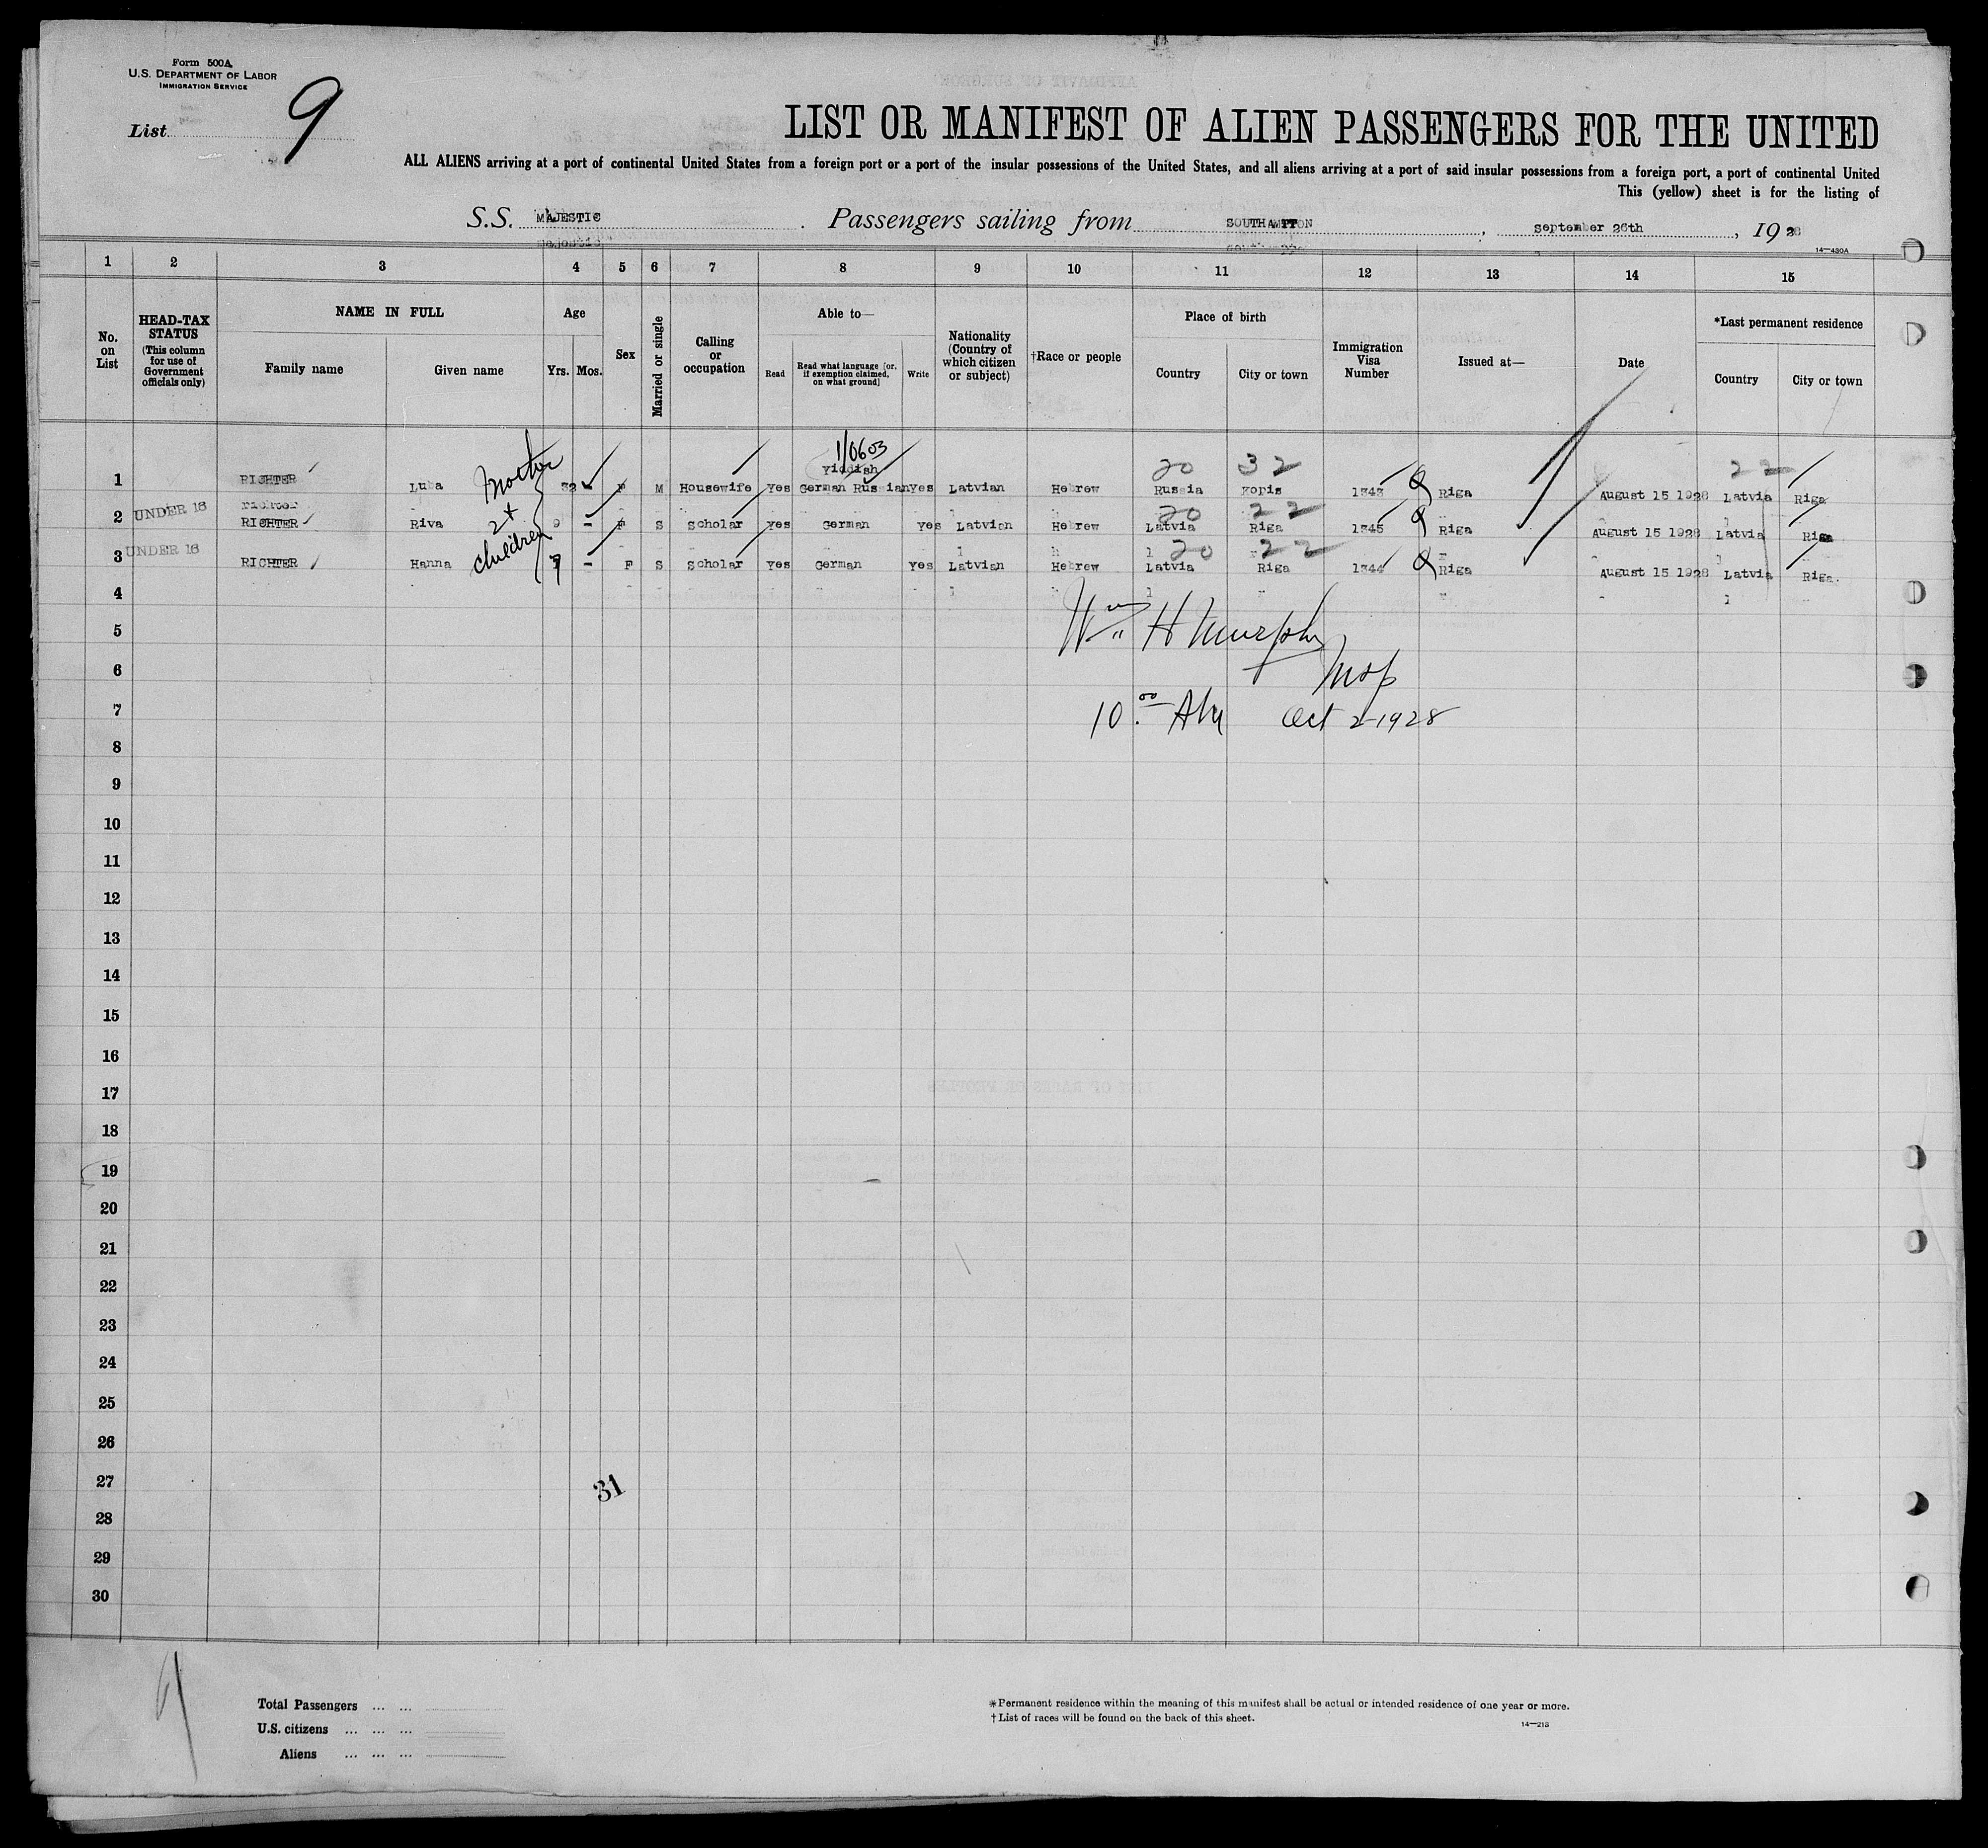 Form 500A
U.S. DEPARTMENT OF LABOR
IMMIGRATION SERVICE
List 9
LIST OR MANIFEST OF ALIEN PASSENGERS FOR THE UNITED
ALL ALIENS arriving at a port of continental United States from a foreign port or a port of the insular possessions of the United States, and all aliens arriving at a port of said insular possessions from a foreign port, a port of continental United
This (yellow) sheet is for the listing of
S.S. MAJESTIC. Passengers sailing from SOUTHAMPTON, september 26th, 1928
14—430A
1 2 3 4 5 6 7 8 9 10 11 12 13 14 15
No. on List
HEAD-TAX STATUS
(This column for use of Government officials only)
NAME IN FULL
Family name
Given name
Age
Yrs. Mos.
Sex
Married or single
Calling or occupation
Able to—
Read
Read what language [or, if exemption claimed, on what ground]
Write
Nationality (Country of which citizen or subject)
†Race or people
Place of birth
Country
City or town
Immigration Visa Number
Issued at—
Date
*Last permanent residence
Country
City or town
Mother
2 +
children
1/0603
20 32 22
Yiddish
1 RICHTER Luba 32 - F M Housewife Yes German Russian Yes Latvian Hebrew Russia 1343 Riga August 15 1928 Latvia Riga
20 22
2 UNDER 16 RICHTER Riva 9 - F S Scholar Yes German Yes Latvian Hebrew Latvia Riga 1345 Riga August 15 1928 Latvia Riga
20 22
3 UNDER 16 RICHTER Hanna 7 - F S Scholar Yes German Yes Latvian Hebrew Latvia Riga 1344 Riga August 15 1928 Latvia Riga.
4
5 Wm H Murphy
6
7 10.00 AM Oct 2-1928
8
9
10
11
12
13
14
15
16
17
18
19
20
21
22
23
24
25
26
27
31
28
29
30
9
Total Passengers ... ...
U.S. citizens ... ... ...
Aliens ... ... ...
*Permanent residence within the meaning of this manifest shall be actual or intended residence of one year or more.
†List of races will be found on the back of this sheet.
14—213